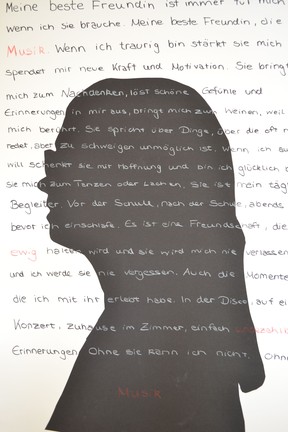 Meine beste Freundin ist immer für mich
wenn ich sie brauche. Meine beste Freundin, die
Musik. Wenn ich traurig bin stärkt sie mich
spendet mir neue Kraft und Motivation. Sie bringt
mich zum Nachdenken, löst schöne Gefühle und
Erinnerungen in mir aus, bringt mich zum weinen, weil
mich berührt. Sie spricht über Dinge, über die oft n
redet, aber zu schweigen unmöglich ist. Wenn ich au
will schenkt sie mir Hoffnung und bin ich glücklich
sie mich zum Tanzen oder Lachen. Sie ist mein täg
Begleiter. Vor der Schule, nach der Schule, abends
bevor ich einschlafe. Es ist eine Freundschaft, die
ewig halten wird und sie wird mich nie verlassen
und ich werde sie nie vergessen. Auch die Momente
die ich mit ihr erlebt habe. In der Disco, auf ei
Konzert, zuhause im Zimmer, einfach
Erinnerungen. Ohne sie kann ich nicht. Ohne
MUSIK